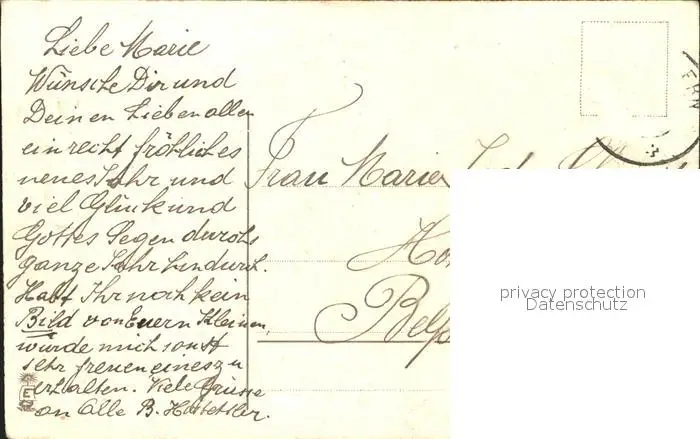 Liebe Marie
Wünsche Dir und
Deinen Lieben allen
ein recht fröhliches
neues Jahr und
viel Glück und
Gottes Segen durchs
ganze Jahr hindurch.
Habt Ihr noch kein
Bild von Euern Kleinen,
würde mich sonst
sehr freuen eines zu
erhalten. Viele Grüsse
an Alle B.
Frau Marie
Belp
privacy protection
Datenschutz